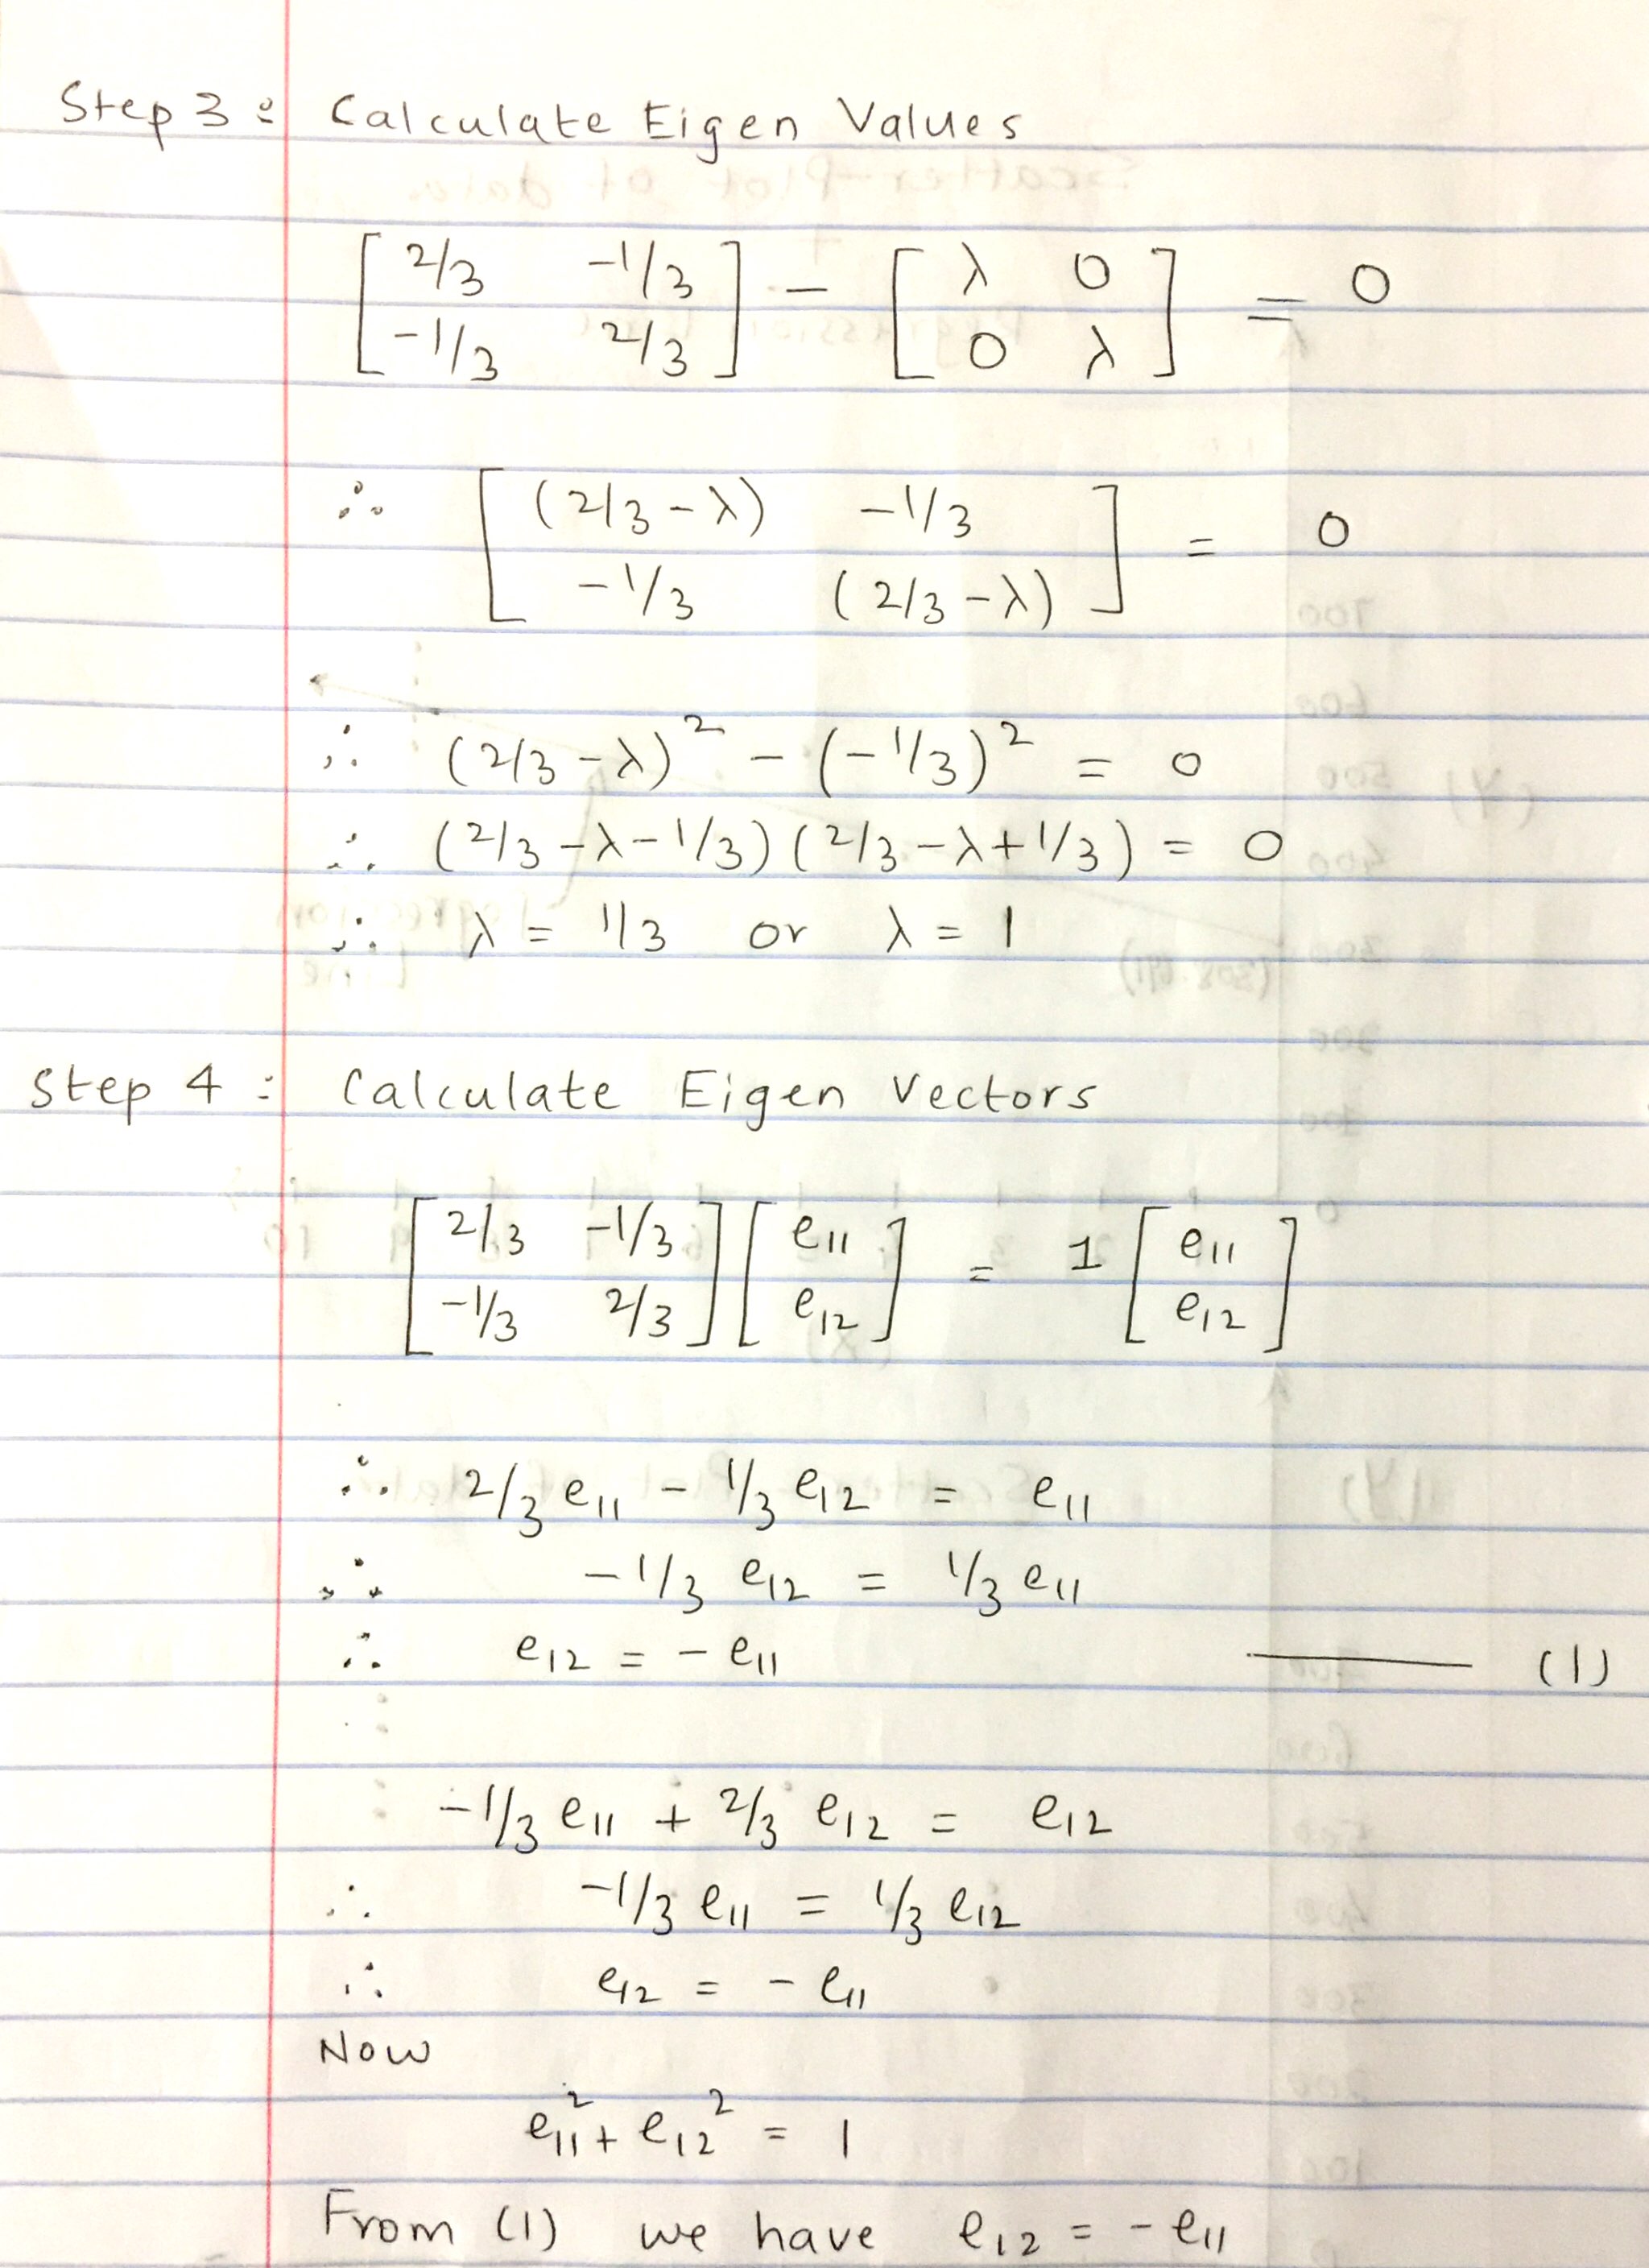 Step 3 : Calculate Eigen Values
[ 2/3 -1/3 ] - [ λ 0 ] = 0
[ -1/3 2/3 ] [ 0 λ ]
∴ [ (2/3 - λ) -1/3 ] = 0
[ -1/3 (2/3 - λ) ]
∴ (2/3 - λ)² - (-1/3)² = 0
∴ (2/3 - λ - 1/3) (2/3 - λ + 1/3) = 0
∴ λ = 1/3 or λ = 1
Step 4 : Calculate Eigen Vectors
[ 2/3 -1/3 ] [ e11 ] = 1 [ e11 ]
[ -1/3 2/3 ] [ e12 ] [ e12 ]
∴ 2/3 e11 - 1/3 e12 = e11
∴ -1/3 e12 = 1/3 e11
∴ e12 = - e11 ——— (1)
-1/3 e11 + 2/3 e12 = e12
∴ -1/3 e11 = 1/3 e12
∴ e12 = - e11
Now
e11² + e12² = 1
From (1) we have e12 = - e11